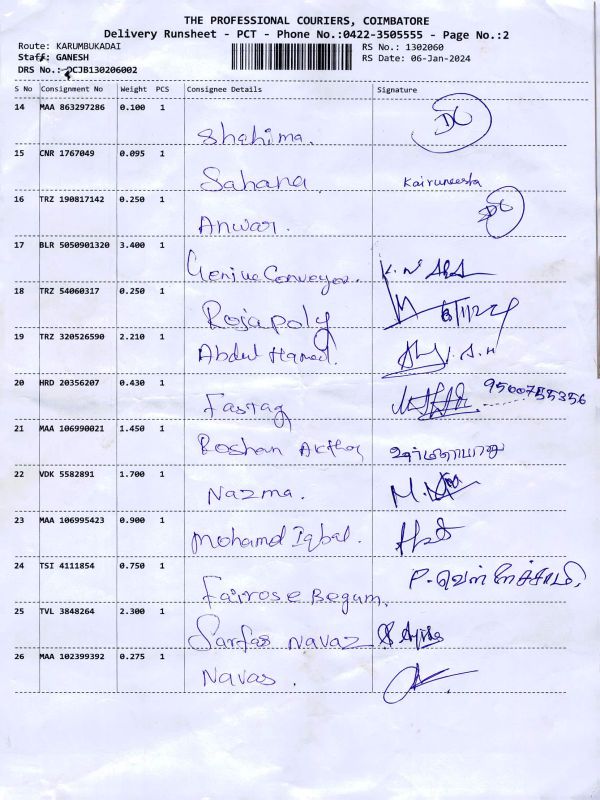 THE PROFESSIONAL COURIERS, COIMBATORE
Delivery Runsheet - PCT - Phone No.:0422-3505555 - Page No.:2
Route: KARUMBUKADAI RS No.: 1302060
Staff: GANESH RS Date: 06-Jan-2024
DRS No.: DCJB130206002
S No Consignment No Weight PCS Consignee Details Signature
14 MAA 863297286 0.100 1
Shahima. DC
15 CNR 1767049 0.095 1
Sahana Kairuneesha
16 TRZ 190817142 0.250 1
Anwar. DC
17 BLR 5050901320 3.400 1
Genine Conveyor.
18 TRZ 54060317 0.250 1
Rojapoly 6/1/24
19 TRZ 320526590 2.210 1
Abdul Hamed.
20 HRD 20356207 0.430 1
Fastag 9500755356
21 MAA 106990021 1.450 1
Roshan Akthar
22 VDK 5582891 1.700 1
Nazma.
23 MAA 106995423 0.900 1
Mohamd Iqbal.
24 TSI 4111854 0.750 1
Fairose Begum.
25 TVL 3848264 2.300 1
Sarfas Navaz
26 MAA 102399392 0.275 1
Navas.